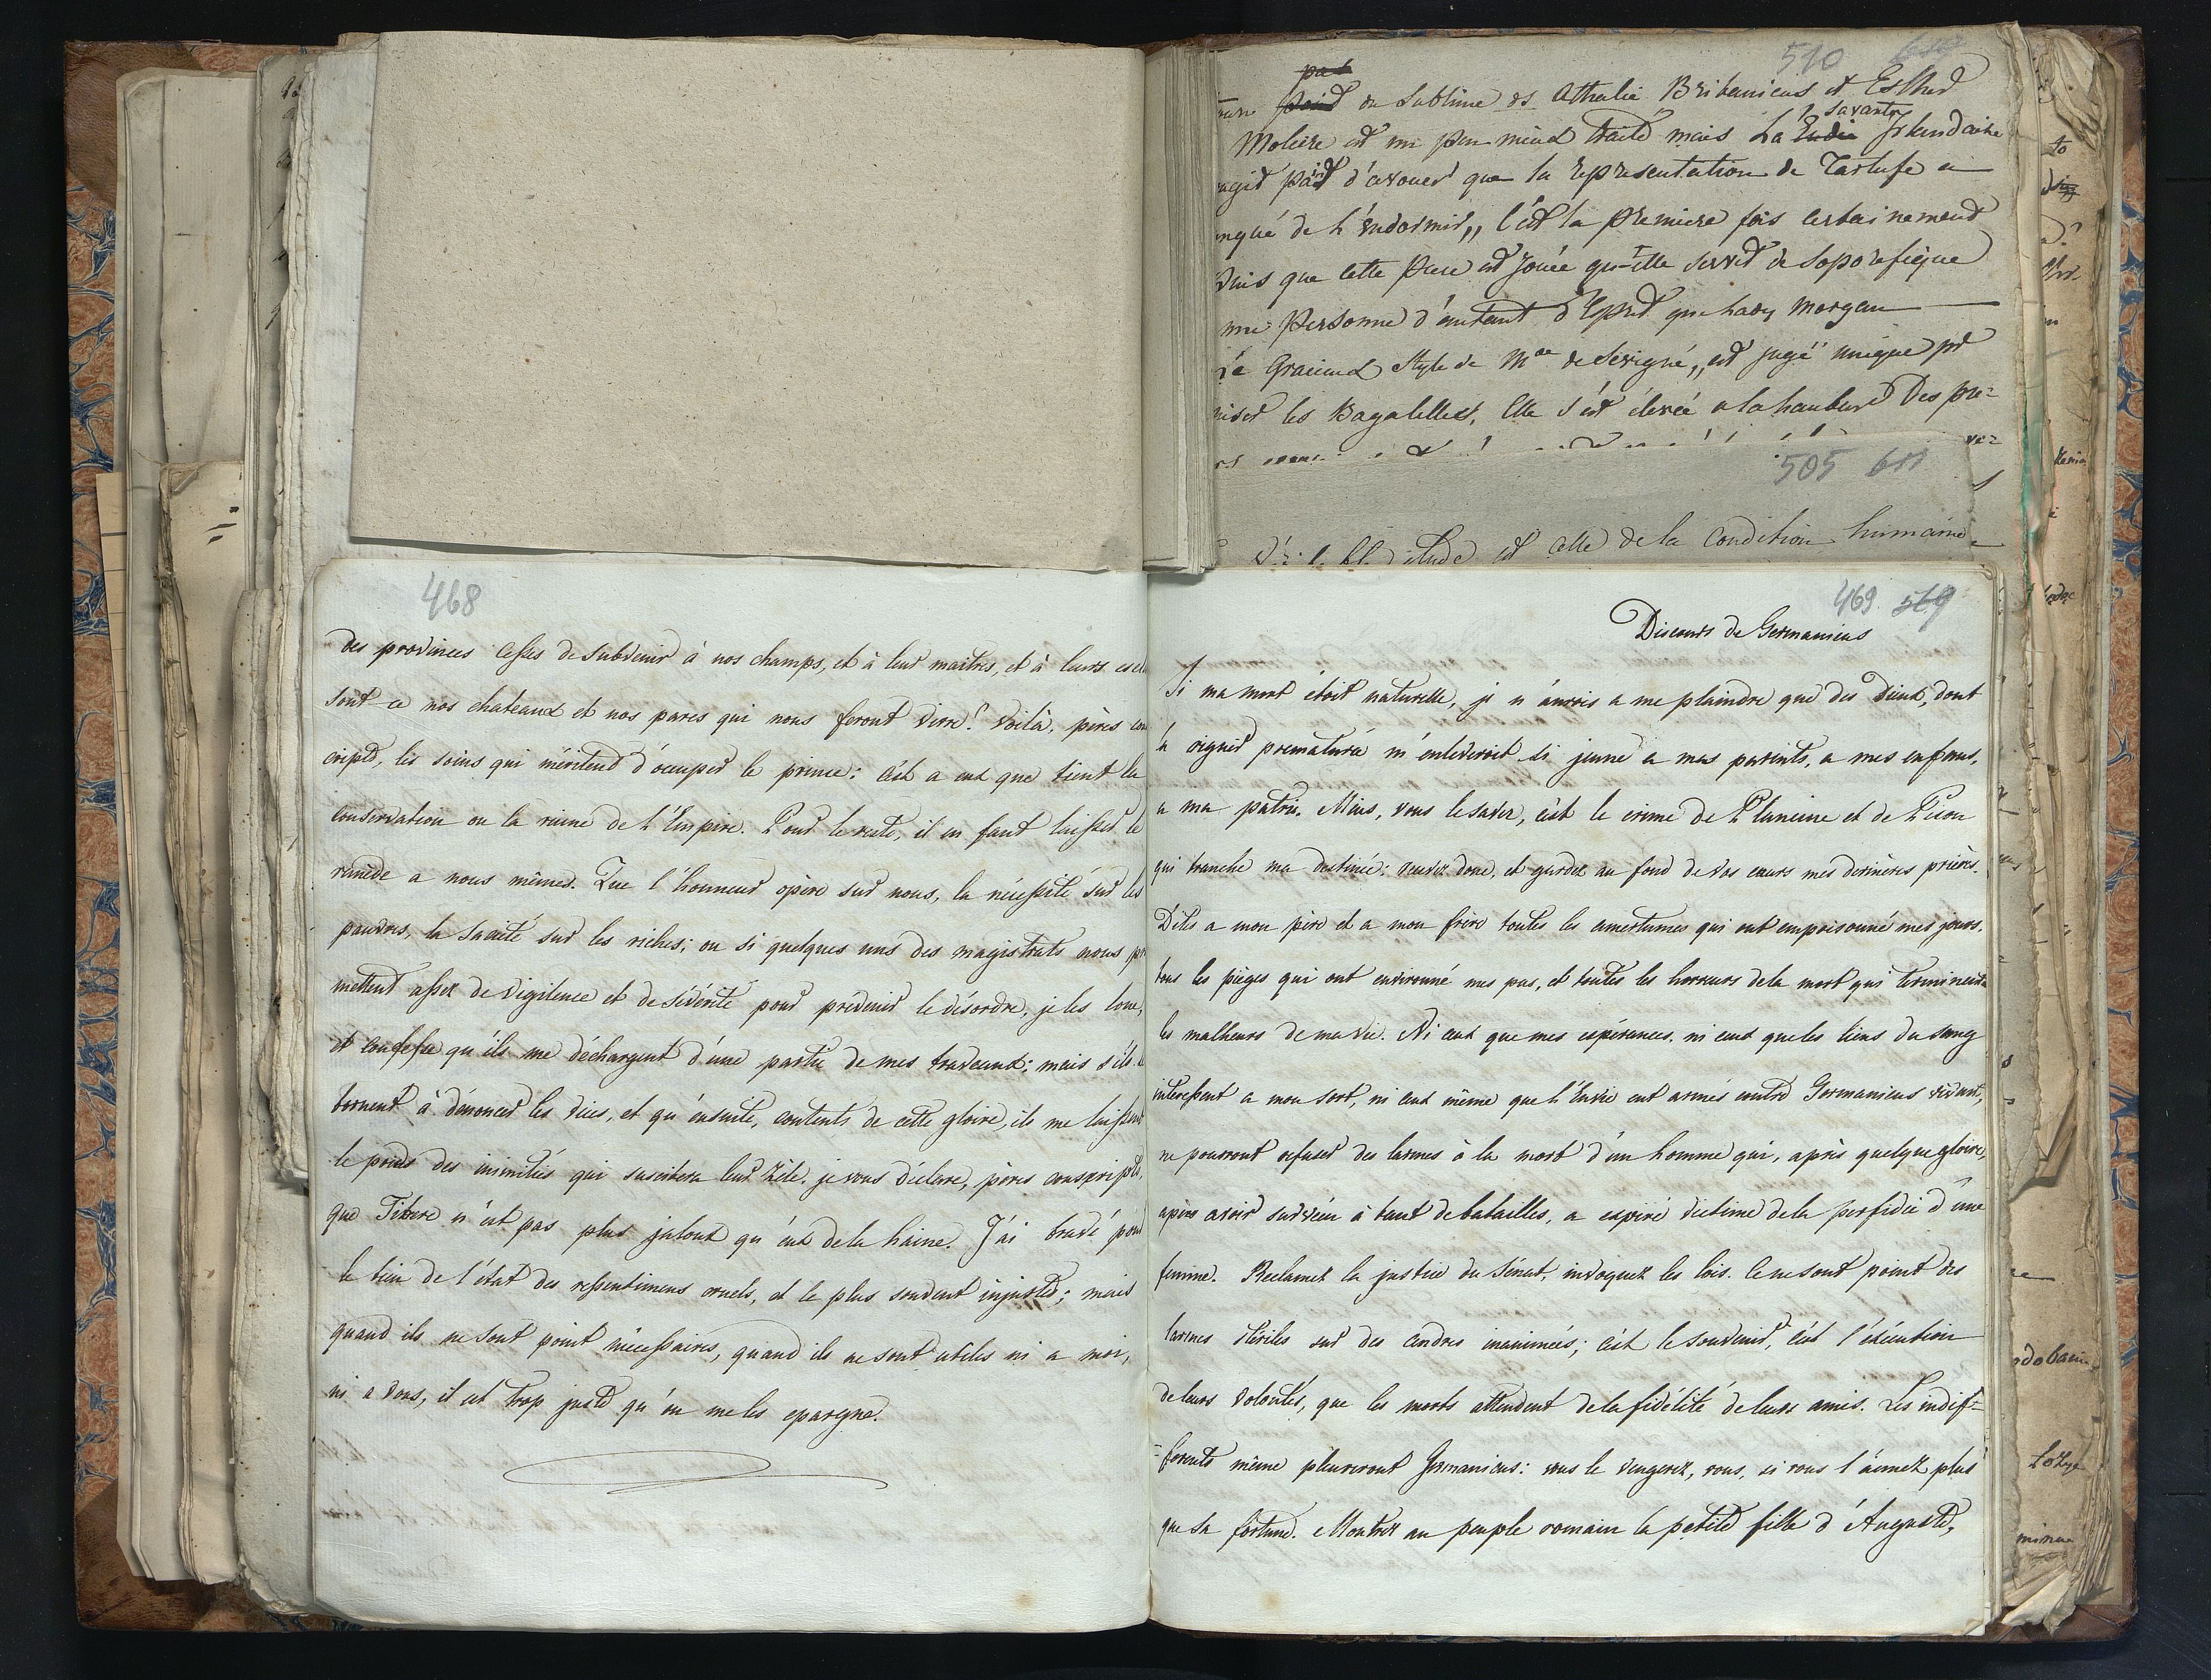 468
des provinces cesses de subvenir à nos champs, et à leur maitres, et à leurs
sont-ce nos chateaux et nos parcs qui nous feront vivre? voilà, pères con
cripts, les soins qui méritent d'occuper le prince: c'est a eux que tient la
conservation ou la ruine de l'Empire. Pour le reste, il en faut laisser le
remède a nous mêmes. Que l'honneur opère sur nous, la nécessité sur les
pauvres, la saciété sur les riches; ou si quelques uns des magistrats nous pro
mettent assez de vigilence et de sévérité pour prévenir le désordre, je les loue,
et confesse qu'ils me déchargent d'une partie de mes traveaux; mais s'ils
bornent à dénoncer les vices, et qu'ensuite, contents de cette gloire, ils me laissent
le poids des inimitiés qui suscitera leur zèle. je vous déclare, pères conscripts,
que Tibere n'est pas plus jaloux qu'eux de la haine. J'ai bravé pour
le bien de l'état des ressentimens cruels, et le plus souvent injustes; mais
quand ils ne sont point nécessaires, quand ils ne sont utiles ni a moi,
ni a vous, il est trop juste qu'on me les epargne.
510
pas
du sublime ds Athalie Britanicus et Esther
savante
Moliere est un peu mieux traité mais La Irlandaise
d'avouer que la representation de Tartufe a
nqué de l'endormir,, c'est la premiere fois certainement
uis que cette piece est jouée qu-elle servit de soporifique
une personne d'autant d'Esprit que Lady Morgan
Le Gracieux style de Mde de Sevigné,, est jugé unique pr
niser les Bagatelles, Elle s'est élevée a la hauteur Des pre=
505 611
itude est celle de la condition humaine
469 569
Discours de Germanicus
Si ma mort étoit naturelle, je n'aurois a me plaindre que des Dieux, dont
la rigueur prematurée m'enleveroit si jeune a mes parents, a mes enfans,
a ma patrie. Mais, vous le savez, c'est le crime de Plancine et de Pison
qui tranche ma destinée: venez donc, et gardez au fond de vos cœurs mes dernières prières.
Dites a mon père et a mon frère toutes les amertumes qui ont empoisonné mes jours.
tous les pièges qui ont environné mes pas, et toutes les horreurs de la mort qui termine
les malheurs de ma vie. Ni ceux que mes espérances, ni ceux que les liens du sang
interessent a mon sort, ni ceux même que l'Envie eut armés contre Germanicus vivant,
ne pourront refuser des larmes à la mort d'un homme qui, après quelque gloire,
après avoir survécu à tant de batailles, a expiré victime de la perfidie d'une
femme. Reclamez la justice du sénat, invoquez les lois. ce ne sont point des
larmes stériles sur des cendres inanimées; c'est le souvenir, c'est l'exécution
de leurs volontés, que les morts attendent de la fidélité de leurs amis. Les indif=
=férents même pleureront Germanicus: vous le vengerez, vous, si vous l'aimez plus
que sa fortune. Montrez au peuple romain la petite fille d'Auguste,